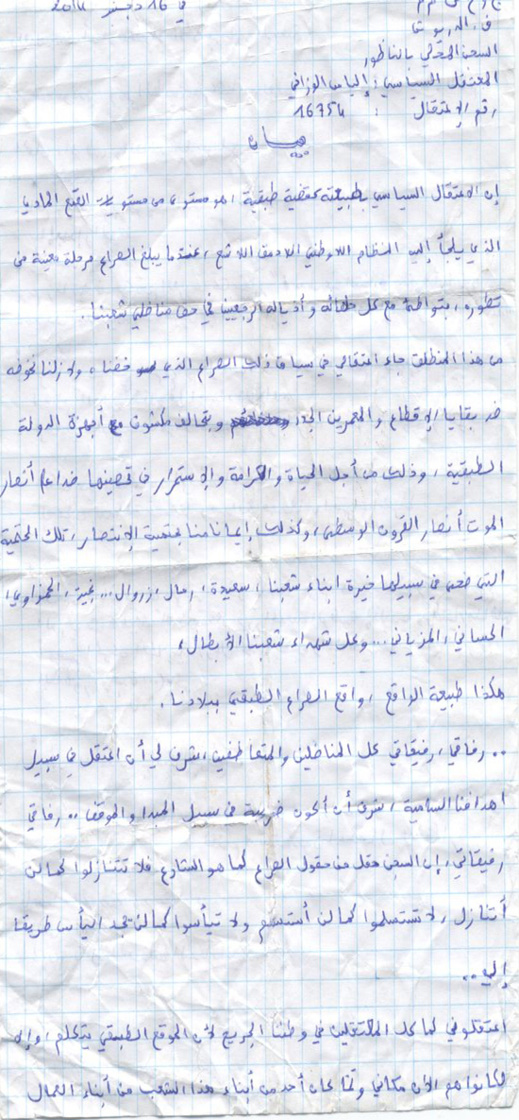 في 16 دجنبر 2014
السجن المحلي بالناظور
المعتقل السياسي : إلياس الوزاني
رقم الإعتقال : 16754
بيان
إن الاعتقال السياسي بطبيعته كقضية طبقية ، هو مستوى من مستويات القمع المادي
الذي يلجأ إليه النظام اللاوطني اللاديمقراطي اللاشعبي ، عندما يبلغ الصراع مرحلة معينة من
تطوره ، بتواطئ مع كل حلفائه وأذياله الرجعيين في حق مناضلي شعبنا .
من هذا المنطلق جاء اعتقالي في سياق ذلك الصراع الذي خضنا ، ولازلنا نخوضه
ضد بقايا الإقطاع والمعمرين الجدد وبتحالف مكشوف مع أجهزة الدولة
الطبقية ، وذلك من أجل الحياة والكرامة والإستمرار في تحصينها ضدا على أنصار
الموت أنصار القرون الوسطى ، وكذلك إيمانا منا بحتمية الإنتصار ، تلك الحتمية
التي ضحى في سبيلها خيرة أبناء شعبنا ، سعيدة ، رحال ، زروال ... نجية ، الحمزاوي ،
الحساني ، المزياني ... وكل شهداء شعبنا الأبطال ،
هكذا طبيعة الواقع ، واقع الصراع الطبقي ببلادنا .
.. رفاقي ، رفيقاتي كل المناضلين والمتعاطفين ، شرف لي أن أعتقل في سبيل
أهدافنا السامية ، شرف أن أكون ضريبة في سبيل المبدأ والموقف .. رفاقي
رفيقاتي ، إن السجن حقل من حقول الصراع كما هو الشارع فلا تتنازلوا كما لن
أتنازل ، لا تستسلموا كما لن أستسلم ولا تيأسوا كما لن تجد اليأس طريقا
إلي ..
اعتقلوني كما كل المعتقلين في وطننا الجريح لأن الموقع الطبقي يتكلم ، وإلا
لكانوا هم الآن مكاني ولما كان أحد من أبناء هذا الشعب من أبناء العمال